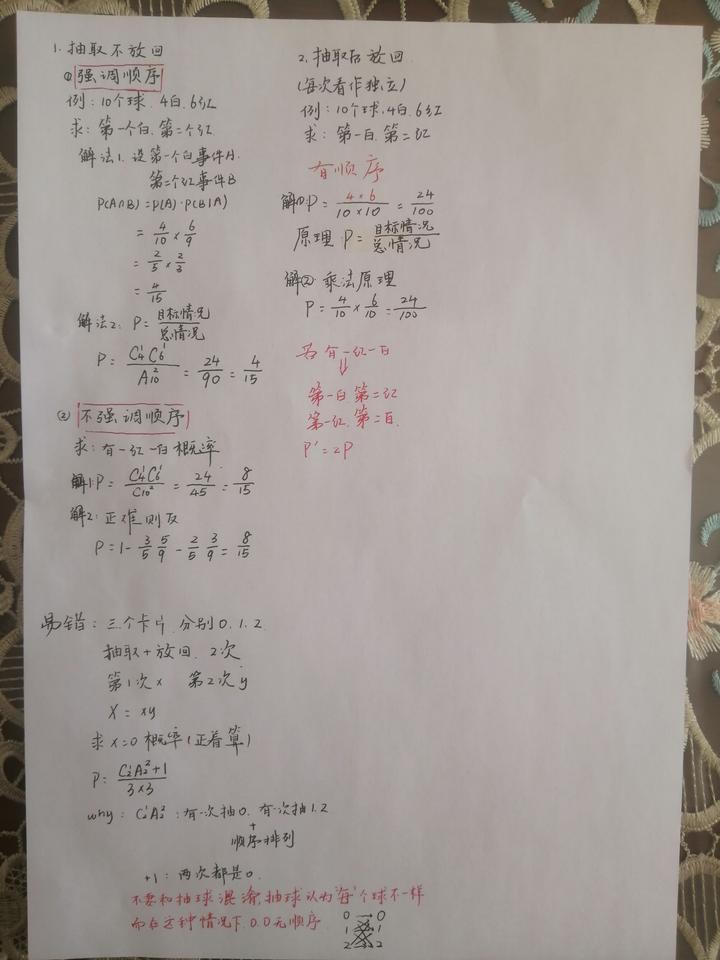 1. 抽取不放回
① 强调顺序
例：10个球. 4白. 6红
求：第一个白. 第二个红
解法1. 设第一个白事件A.
第二个红事件B
P(A∩B)=P(A)·P(B|A)
= 4/10 × 6/9
= 2/5 × 2/3
= 4/15
解法2：P = 目标情况/总情况
P = C₄¹C₆¹/A₁₀² = 24/90 = 4/15
② 不强调顺序
求：有一红一白概率
解1：P = C₄¹C₆¹/C₁₀² = 24/45 = 8/15
解2：正难则反
P = 1 - 3/5 5/9 - 2/5 3/9 = 8/15
2. 抽取后放回.
(每次看作独立)
例：10个球. 4白. 6红
求：第一白. 第二红
有顺序
解①：P = 4×6/10×10 = 24/100
原理 P = 目标情况/总情况
解②：乘法原理
P = 4/10 × 6/10 = 24/100
若有一红一白
⇓
第一白 第二红
第一红. 第二白.
P' = 2P
易错：三个卡片. 分别0. 1. 2.
抽取+放回. 2次
第1次x 第2次y
X = xy
求 x=0 概率(正着算)
P = C₂¹A₂²+1/3×3
why：C₂¹A₂²：有一次抽0. 有次抽1.2
+
顺序排列
+1：两次都是0.
不要和抽球混淆, 抽球认为"每"个球不一样
而在这种情况下. 0.0无顺序
0 0
1 1
2 2